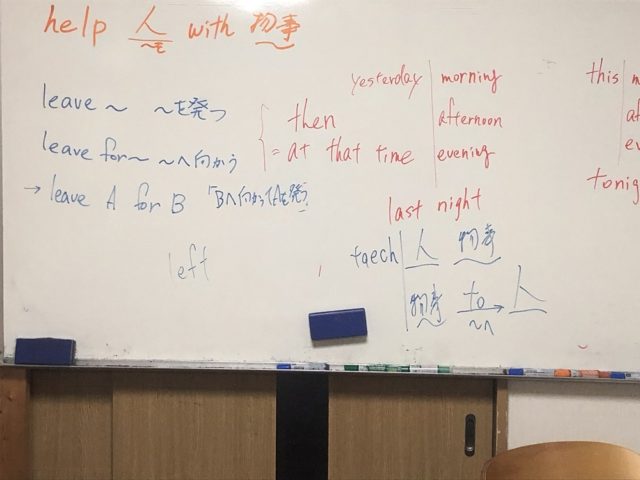 help 人 with 物事
～を
leave ～ ～を発つ
leave for～ ～へ向かう
→ leave A for B 「Bへ向かってAを発つ」
left
then
= at that time
yesterday morning
afternoon
evening
last night
taech 人 物事
物事 to 人
～へ
this